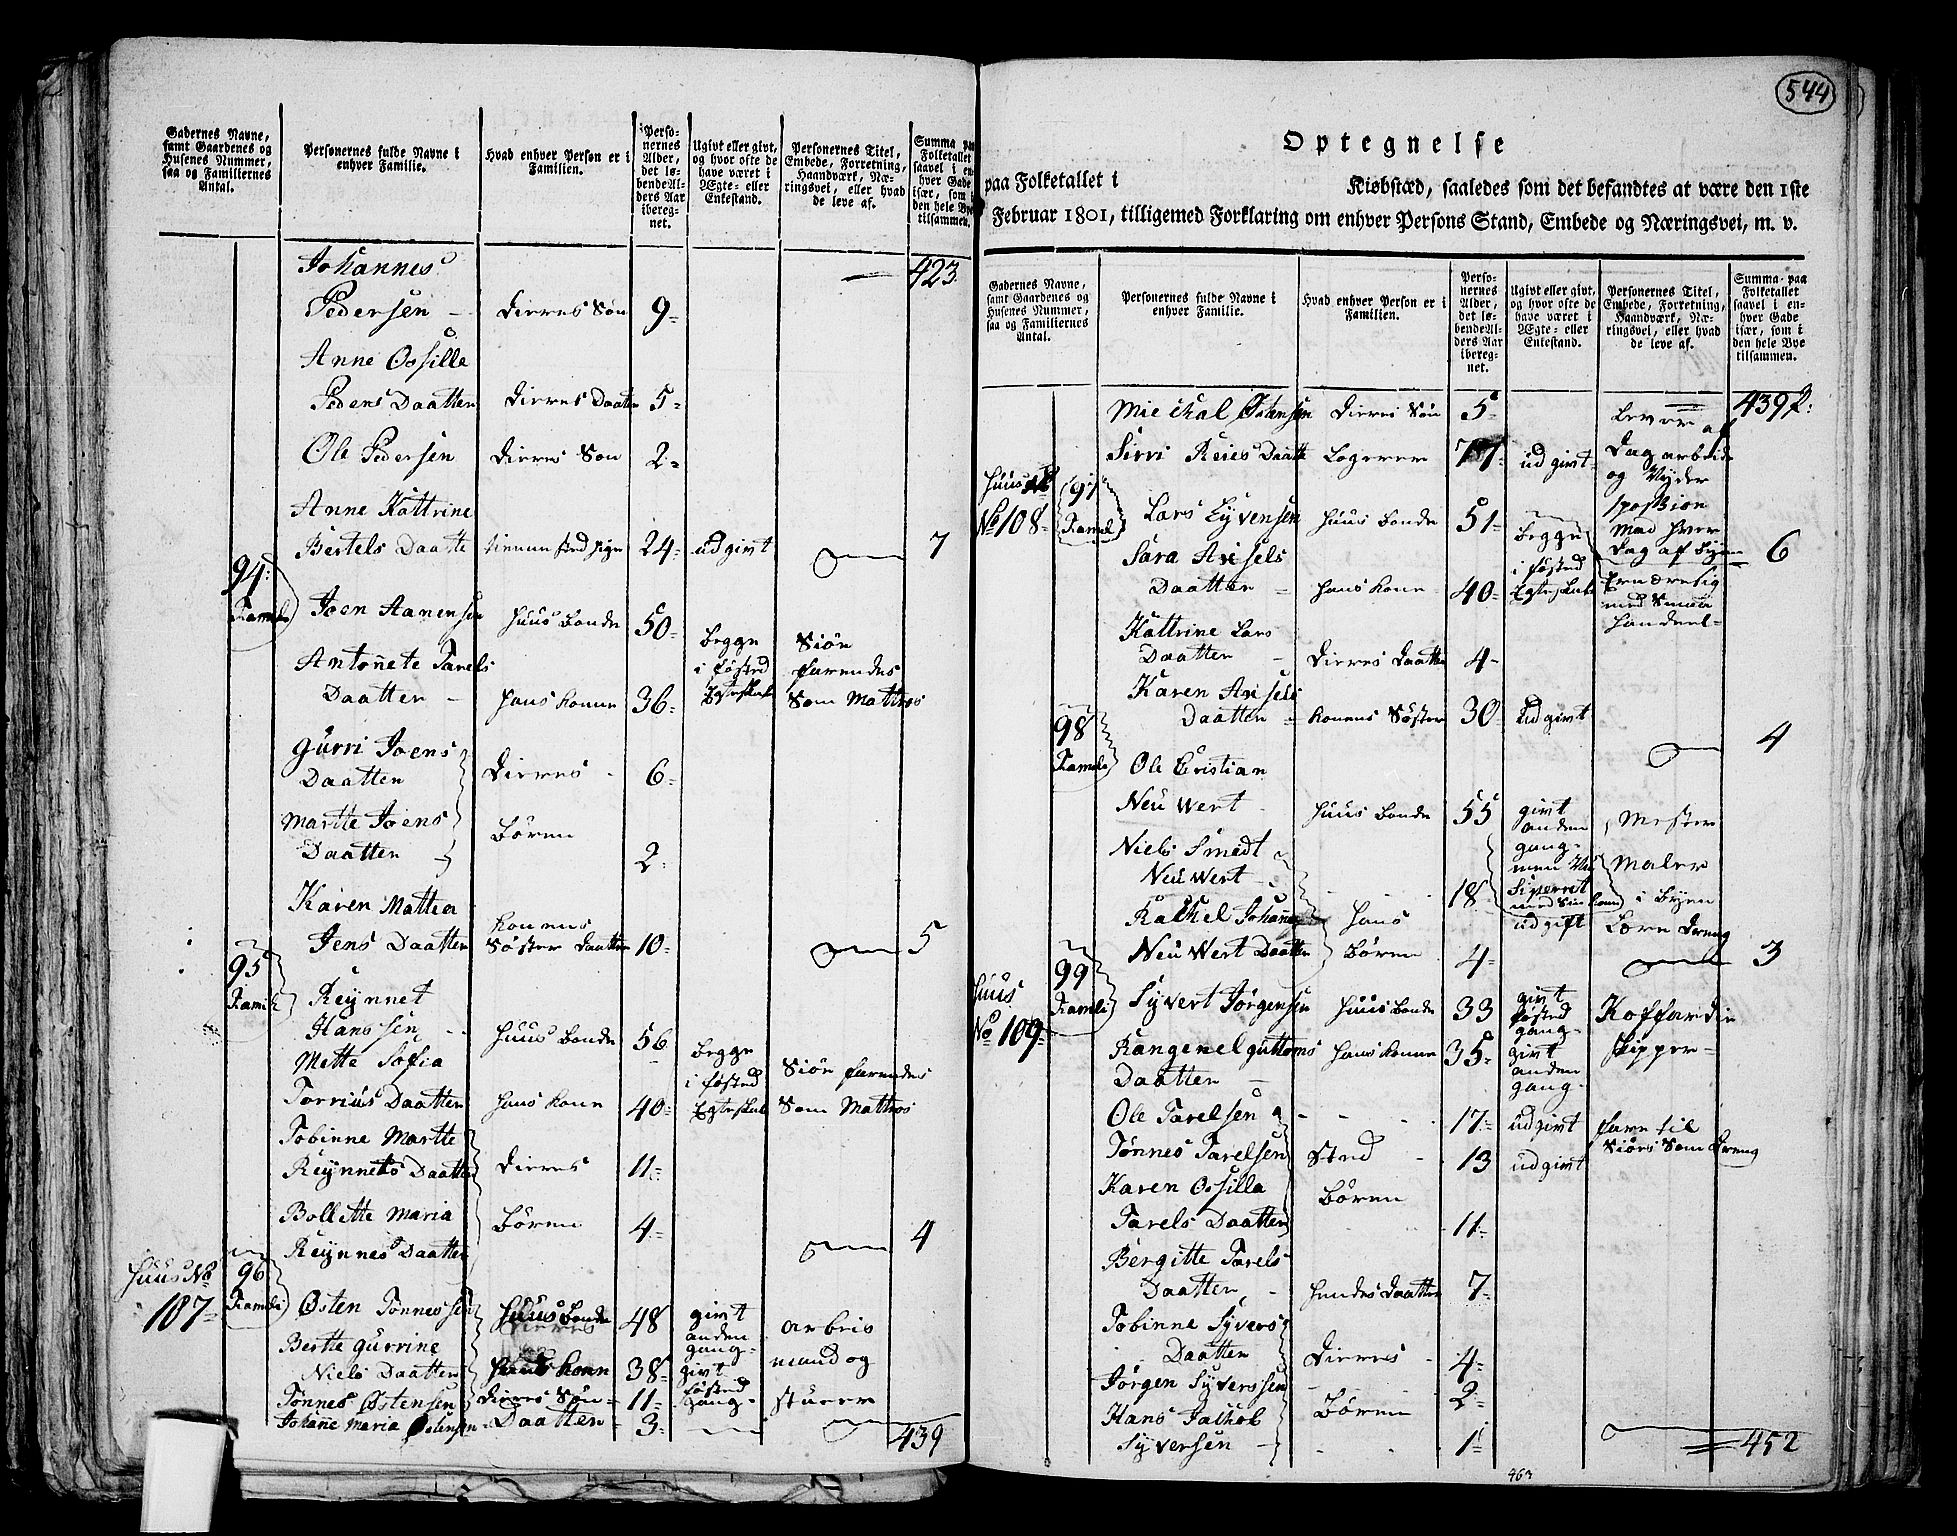 Gadernes Navne, samt Gaardenes og Husenes Nummer, saa og Familiernes Antal.
Personernes fulde Navne i enhver Familie.
Hvad enhver Person er i Familien.
Personernes Alder, det løbende Alders Aar iberegnet.
Ugivt eller givt, og hvor ofte de have været i Ægte- eller Enkestand.
Personernes Titel, Embede, Forretning, Haandværk, Næringsvei, eller hvad de leve af.
Summa paa Folketallet saavel i enhver Gade især, som i den hele Bye tilsammen.
Johannes 423
Pedersen Dierres Søn 9
Anne Ossille
Peders Daatter Dierres Daatter 5
Ole Pedersen Dierres Søn 2
Anne Kattrine
Bertels Daatte 24 ud givt 7
94 Famili Joen Aanensen Huus Bonde 50 Begge i føsted Egteskab Siøe farendes Som Mattros
Antoñete Tarels
Daatter Hans Konne 36
Gurri Joens
Daatter Dierres 6
Martte Joens Børen
Daatter 2
Karen Mattea Konens
Jens Daatter Søster Daatter 10 5
95 Famili Reÿnnet
Hanssen Huus Bonde 56 Begge i føsted Egteskab Siøe farendes Som Mattros
Mette Sofia
Torrius Daatter Hans Konne 40
Tobinne Martte
Reÿnnets Daatter Dierres 11
Bollette Maria Børen 4 4
Reÿnnes Daatter
Huus No 107 96 Famili Østen Tønnessen Huus Bonde 48 givt anden gang arbeis mand og stuerr
Berthe Gurrine
Niels Daatter Hans Konn 38 givt føsted gang
Tønnes Østensen Dierres Søn 11
Johane Maria Østensen Daatter 3 439
544
Optegnelse
paa Folketallet i Kiøbstæd, saaledes som det befandtes at være den 1ste
Februar 1801, tilligemed Forklaring om enhver Persons Stand, Embede og Næringsvei, m. v.
Gadernes Navne, samt Gaardenes og Husenes Nummer, saa og Familiernes Antal.
Personernes fulde Navne i enhver Familie.
Hvad enhver Person er i Familien.
Personernes Alder, det løbende Alders Aar iberegnet.
Ugivt eller givt, og hvor ofte de have været i Ægte- eller Enkestand.
Personernes Titel, Embede, Forretning, Haandværk, Næringsvei, eller hvad de leve af.
Summa paa Folketallet saavel i enhver Gade især, som i den hele Bye tilsammen.
Miechal Østensen Dierres Søn 5 439
Sirri Reies Daatte Logerer 77 ud givt Lever af Dag arbeide og Nÿder
Huus No 108 97 Famil Lars Eÿvensen Huus Bonde 51 Begge i føsted Egteskab Mad hver Dag af Bÿen 6
Sara Axsels
Daatter Hans Konne 40 Ernære sig med Smaa Handeel
Kattrine Lars
Daatter Dierres Daatter 4
Karen Axsels
Daatter Konens Søster 30 Ud givt 4
98 Famili Ole Cristian
Neu Wert Huus Bonde 55 givt anden gang Mester Maler i Bÿen
Niels Smedt
Neu Wert 18 ud gift Lære Dreng
Rachel Johane Hans
Neu Wert Daatter Børen 4 3
Huus No 109 99 Famili Sÿvert Jørgensen Huus Bonde 33 givt føsted gang Koffardie skipper
Rangenel guttoms Hans Konne 35 givt anden gang
Daatter
Ole Tarelsen 17 ud givt fare til Siøes Som Dreng
Tønnes Tarelsen Sted 13 ud givt
Karen Ossilla Børen
Tarels Daatter 11
Bergitte Tarels
Daatter Hendes Daatter 7
Tobinne Sÿvers
Daatter Dierres 4
Jørgen Sÿverssen 2
Hans Jachob Børen
Sÿversen 1 452
463